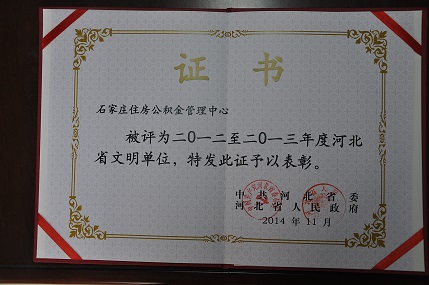 证书
石家庄住房公积金管理中心
被评为二〇一二至二〇一三年度河北
省文明单位，特发此证予以表彰。
中共河北省委
河北省人民政府
2014 年 11 月